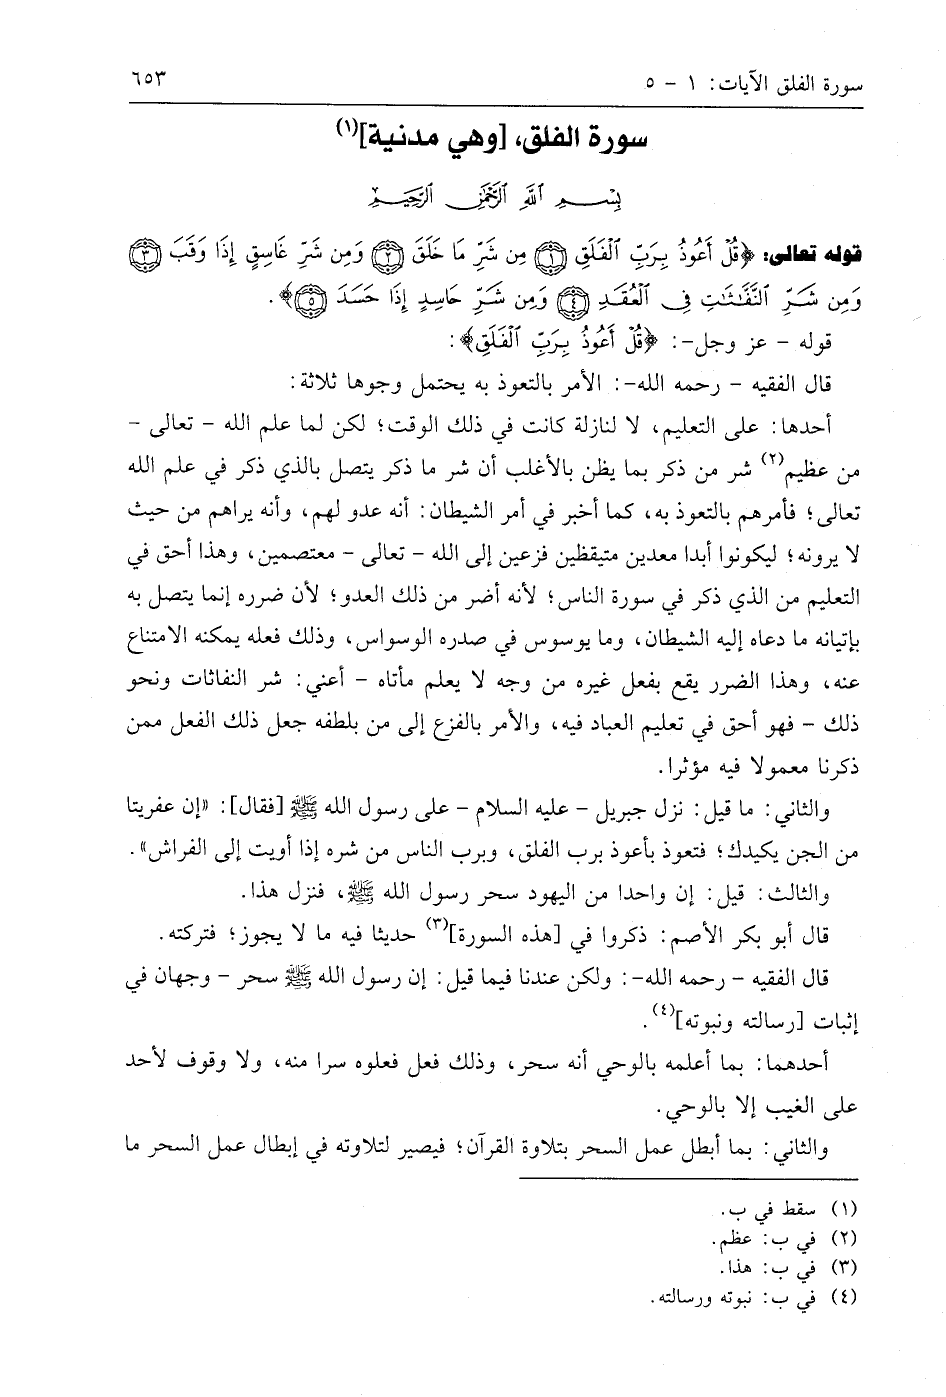 سورة الفلق الآيات: ١ - ٥
٦٥٣
سورة الفلق، [وهي مدنية](١)
بِسْمِ اللَّهِ الرَّحْمَٰنِ الرَّحِيمِ
قوله تعالى: ﴿قُلْ أَعُوذُ بِرَبِّ الْفَلَقِ ۝١ مِن شَرِّ مَا خَلَقَ ۝٢ وَمِن شَرِّ غَاسِقٍ إِذَا وَقَبَ ۝٣
وَمِن شَرِّ النَّفَّاثَاتِ فِي الْعُقَدِ ۝٤ وَمِن شَرِّ حَاسِدٍ إِذَا حَسَدَ ۝٥﴾.
قوله - عز وجل-: ﴿قُلْ أَعُوذُ بِرَبِّ الْفَلَقِ﴾:
قال الفقيه - رحمه الله-: الأمر بالتعوذ به يحتمل وجوها ثلاثة:
أحدها: على التعليم، لا لنازلة كانت في ذلك الوقت؛ لكن لما علم الله - تعالى -
من عظيم(٢) شر من ذكر بما يظن بالأغلب أن شر ما ذكر يتصل بالذي ذكر في علم الله
تعالى؛ فأمرهم بالتعوذ به، كما أخبر في أمر الشيطان: أنه عدو لهم، وأنه يراهم من حيث
لا يرونه؛ ليكونوا أبدا معدين متيقظين فزعين إلى الله - تعالى - معتصمين، وهذا أحق في
التعليم من الذي ذكر في سورة الناس؛ لأنه أضر من ذلك العدو؛ لأن ضرره إنما يتصل به
بإتيانه ما دعاه إليه الشيطان، وما يوسوس في صدره الوسواس، وذلك فعله يمكنه الامتناع
عنه، وهذا الضرر يقع بفعل غيره من وجه لا يعلم مأتاه - أعني: شر النفاثات ونحو
ذلك - فهو أحق في تعليم العباد فيه، والأمر بالفزع إلى من بلطفه جعل ذلك الفعل ممن
ذكرنا معمولا فيه مؤثرا.
والثاني: ما قيل: نزل جبريل - عليه السلام - على رسول الله ﷺ [فقال]: «إن عفريتا
من الجن يكيدك؛ فتعوذ بأعوذ برب الفلق، وبرب الناس من شره إذا أويت إلى الفراش».
والثالث: قيل: إن واحدا من اليهود سحر رسول الله ﷺ، فنزل هذا.
قال أبو بكر الأصم: ذكروا في [هذه السورة](٣) حديثا فيه ما لا يجوز؛ فتركته.
قال الفقيه - رحمه الله-: ولكن عندنا فيما قيل: إن رسول الله ﷺ سحر - وجهان في
إثبات [رسالته ونبوته](٤).
أحدهما: بما أعلمه بالوحي أنه سحر، وذلك فعل فعلوه سرا منه، ولا وقوف لأحد
على الغيب إلا بالوحي.
والثاني: بما أبطل عمل السحر بتلاوة القرآن؛ فيصير لتلاوته في إبطال عمل السحر ما
(١) سقط في ب.
(٢) في ب: عظم.
(٣) في ب: هذا.
(٤) في ب: نبوته ورسالته.